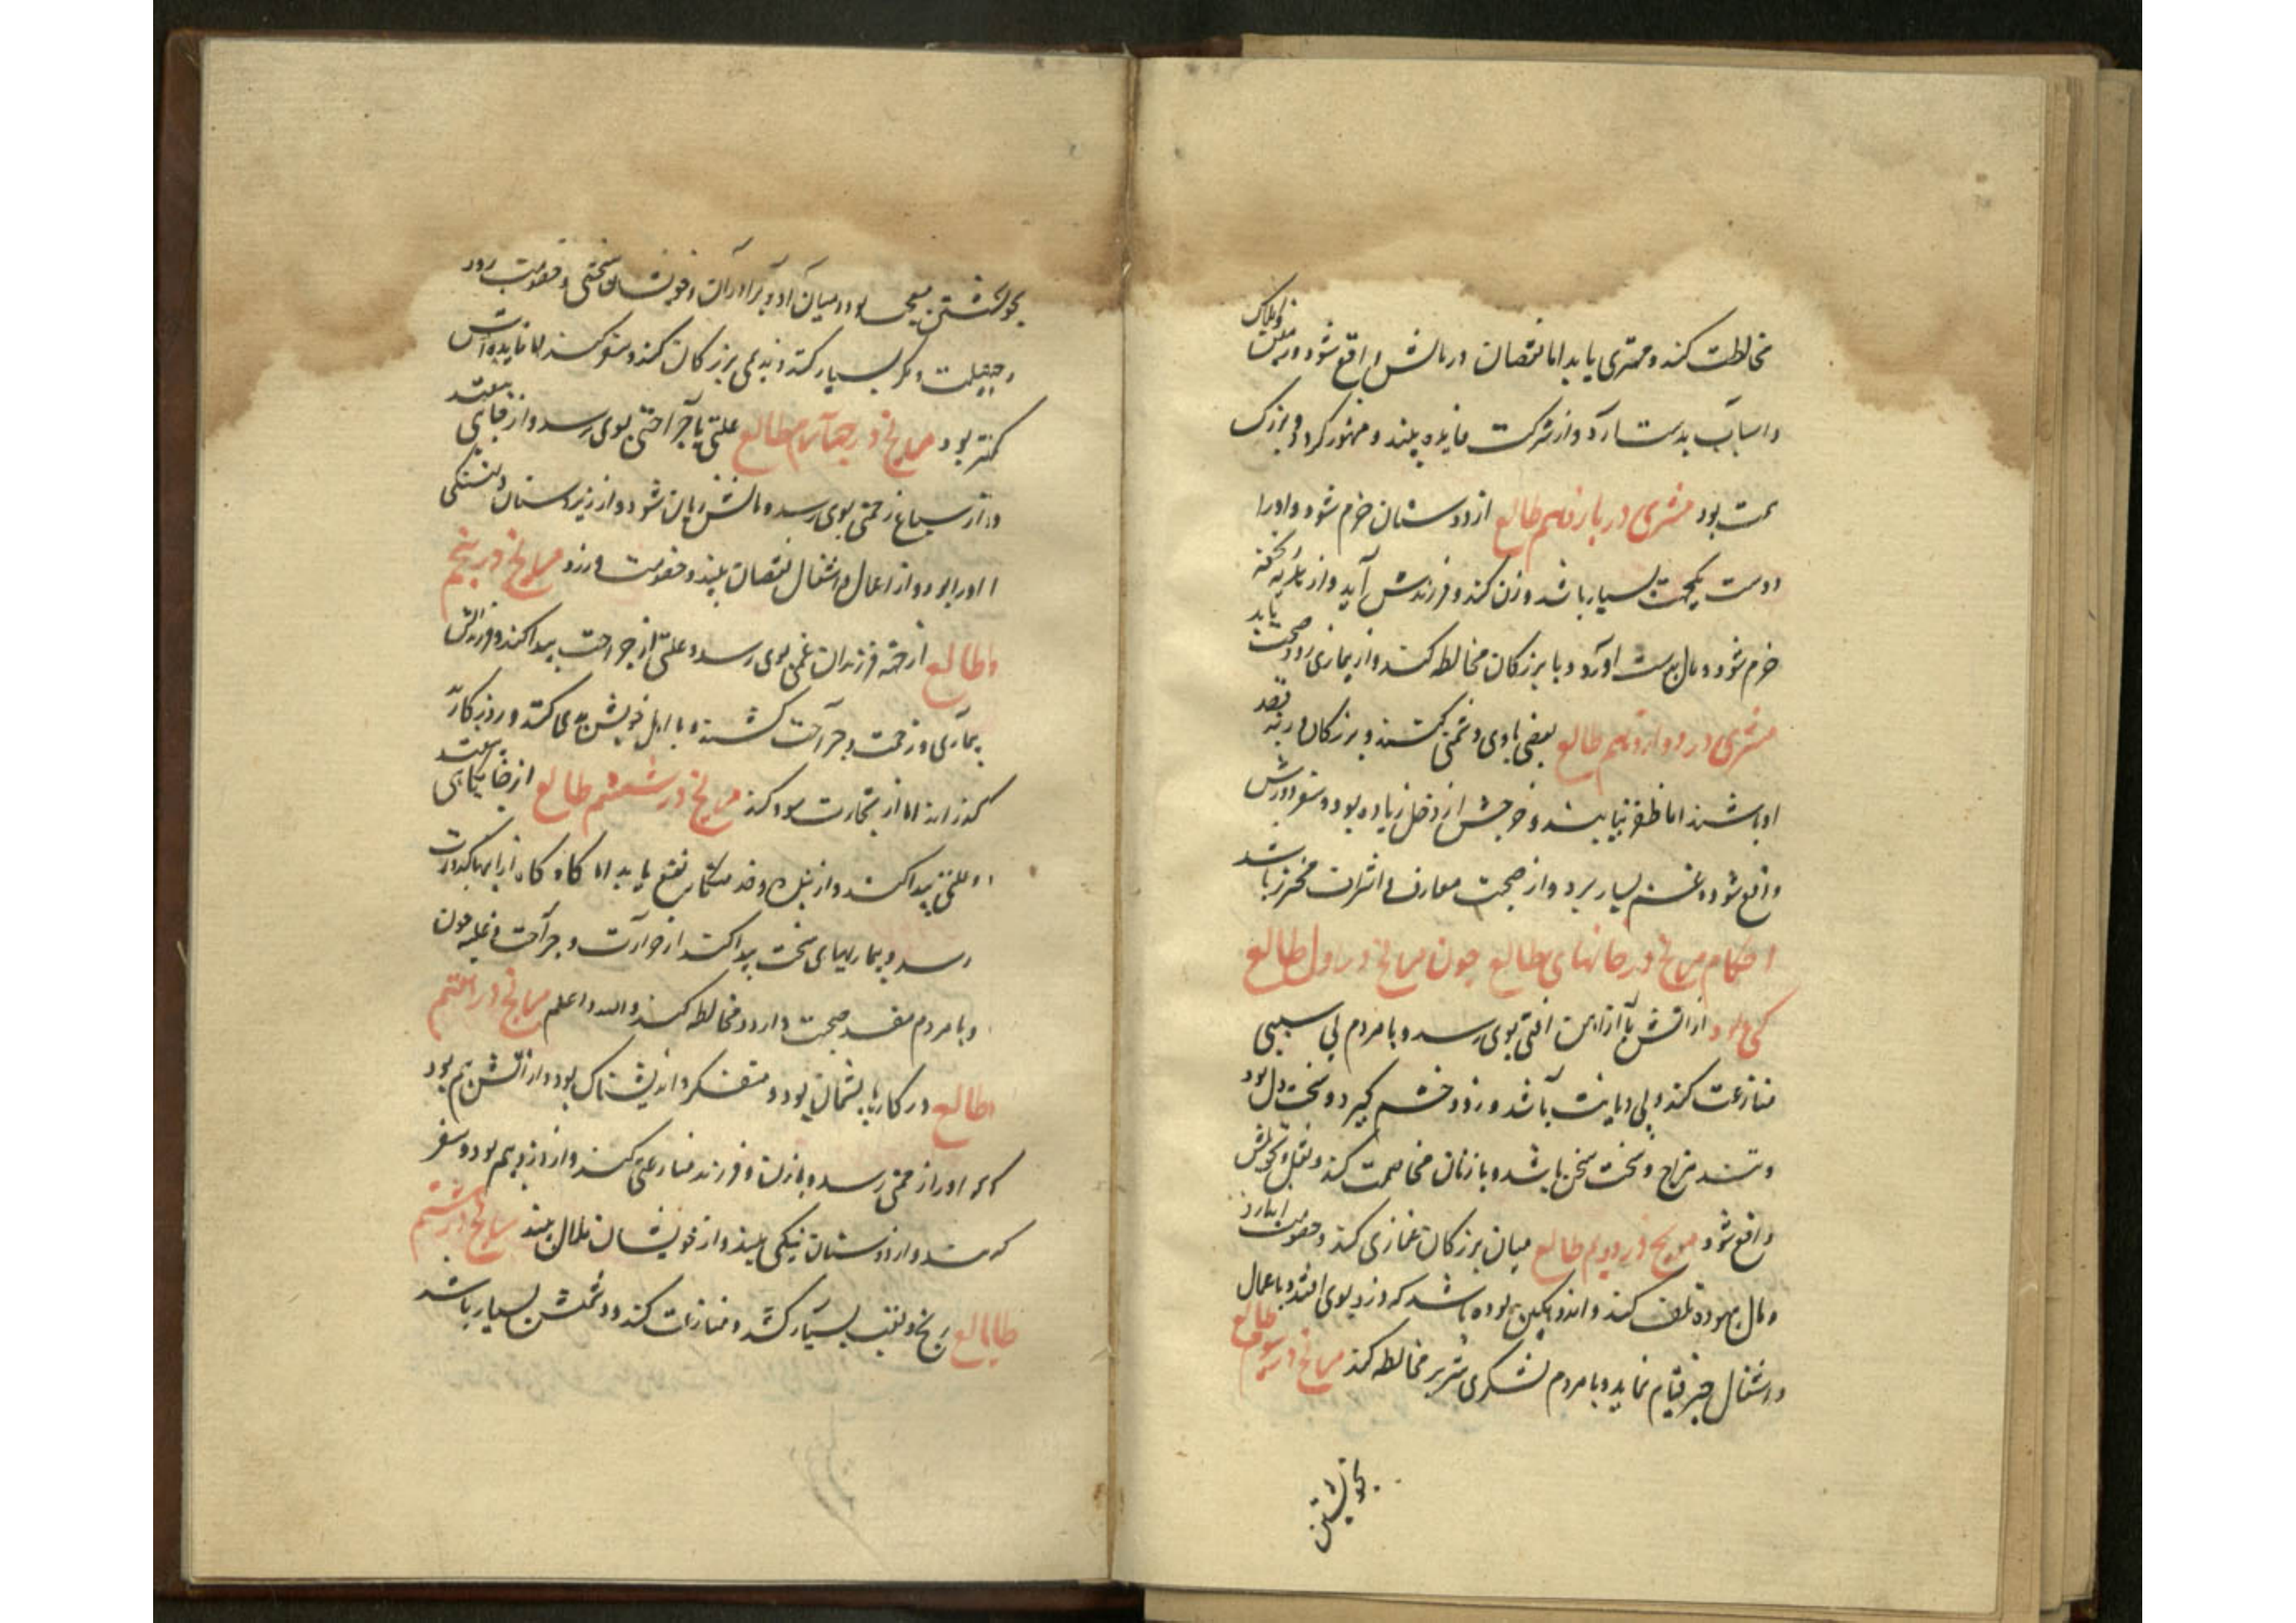 مخالطت کند و مهتری یابد اما نقصان در مالش واقع شود و در ملک و املاک
و اسباب بدست آرد و از شرکت فایده بیند و مشهور گردد و بزرگ
همت بود مشتری در یازدهم طالع از دوستان خرم شود و او را
دوست یکجهت بسیار باشد و زن کند و فرزندش آید و از
خرم شود و مال بدست آورد و با بزرگان مخالطه کند و از بیماری زود صحت یابد
مشتری در دوازدهم طالع بعضی با وی دشمنی کنند و بزرگان در پی قصد
او باشند اما ظفر نیابند و خرجش از دخل زیاده بود و سفر دورش
واقع شود و غم بسیار برد و از صحبت معارف و اشراف محترز باشد
احکام مریخ در خانهای طالع چون مریخ در اول طالع
کسی بود از آتش یا از آهن آفتی بوی رسد و با مردم بی سببی
منازعت کند و بی دیانت باشد و زود خشم گیرد و سخت دل بود
و تند مزاج و سخت سخن باشد و با زنان مخاصمت کند و نقل و تحویلش
واقع شود مریخ در دویم طالع میان بزرگان غمازی کند و خصومت اندازد
و مال بیهوده تلف کند و اندوهگین بوده باشد که دزد بوی افتد و باعمال
و اشغال خیر قیام نماید و با مردم لشکری شریر مخالطه کند مریخ در سوم طالع
بخویشتن
بخویشتن معجب بود و میان او و برادران و خویشان سختی و خصومت رود
و حیلت و مکر بسیار کند و ندیمی بزرگان کند و سفر کند اما فایده‌اش
کمتر بود مریخ در چهارم طالع علتی یا جراحتی بوی رسد و از جای بیفتد
و از سباع زحمتی بوی رسد و مالش زیان شود و از زیردستان دلتنگی
او را بود و از اعمال و اشغال نقصان بیند و خصومت ورزد مریخ در پنجم
طالع از جهة فرزندان غمی بوی رسد و علتی از جراحت پیدا کند و فرزندانش
بیماری و زحمت و جراحت کشند و با اهل خویش بدی کند و روزگار بد
گذراند اما از تجارت سود کند مریخ در ششم طالع از جایگاهی بیفتد
و علتی پیدا کند و از نفع یابد اما گاه گاه کدورت
رسد و بیماریهای سخت پیدا کند از حرارت و جراحت و غلبه خون
و با مردم مفسد صحبت دارد و مخالطه کند والله اعلم مریخ در هفتم
طالع در کارها پشیمان بود و متفکر و اندیشناک بود و از آتش بیم بود
که او را زحمتی رسد و با زن و فرزند منازعتی کند و از دزد بیم بود و سفر
کند و از دوستان نیکی بیند و از خویشان ملال بیند مریخ در هشتم
طالع رنج و تعب بسیار کشد و منازعات کند و دشمنش بسیار باشد